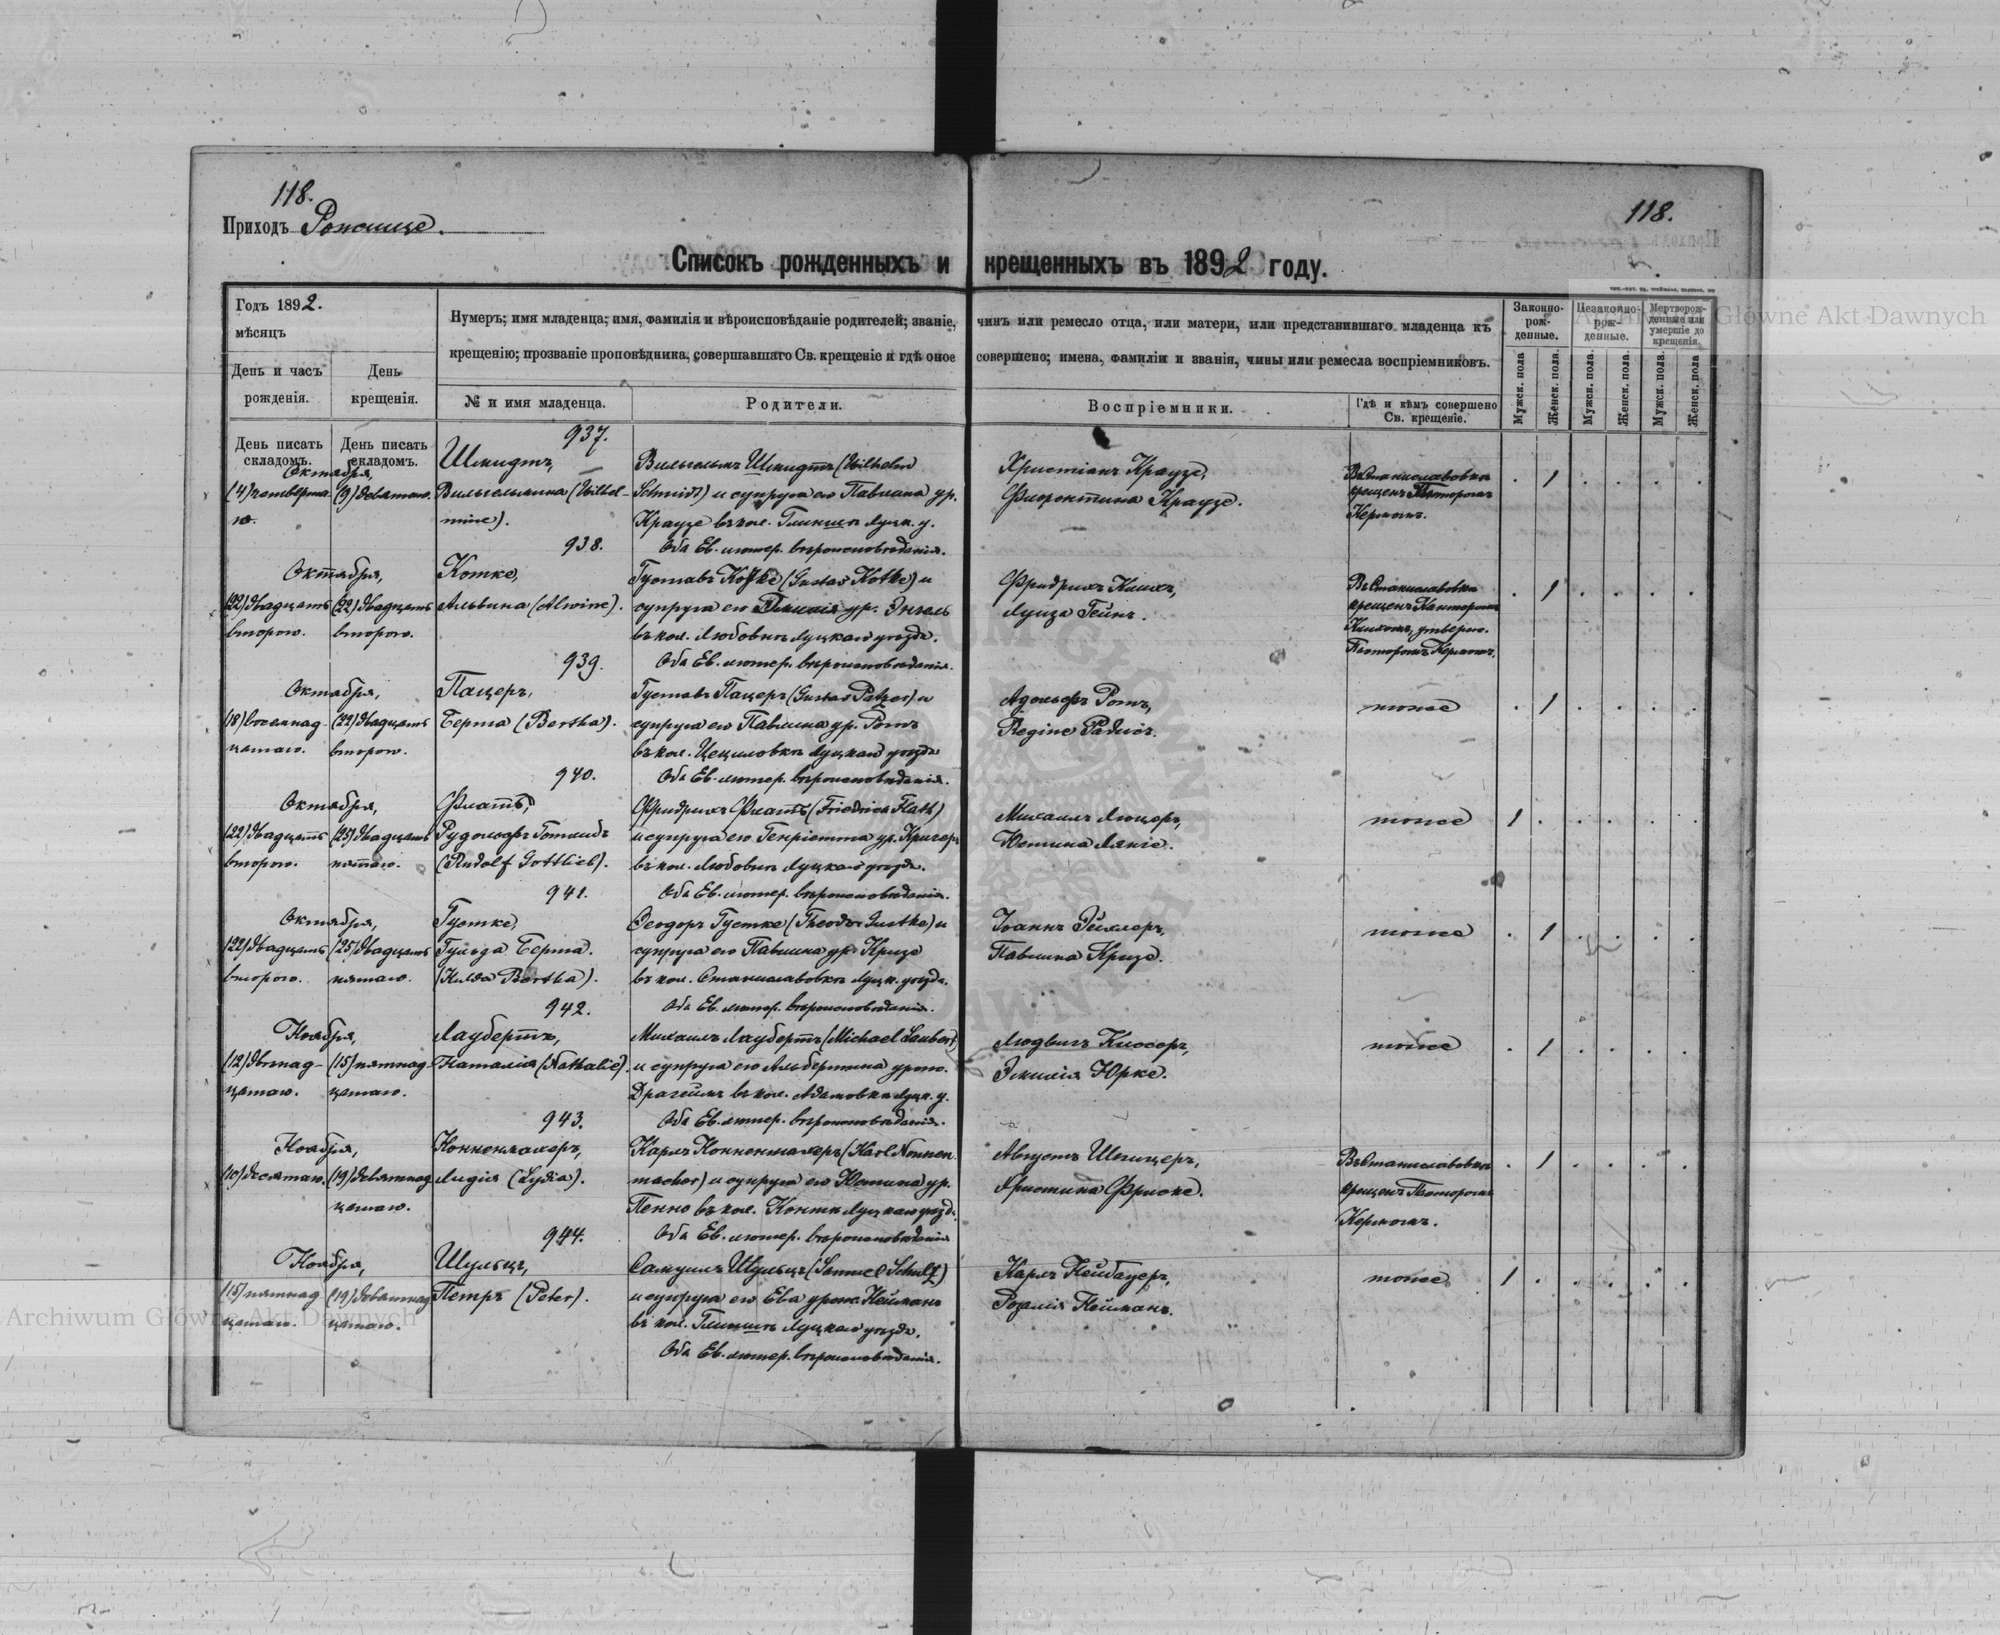 118.
118.
Приходъ Рожище.
Списокъ рожденныхъ и крещенныхъ въ 1892 году.
Годъ 1892.
мѣсяцъ
Нумеръ; имя младенца; имя, фамилія и вѣроисповѣданіе родителей; званіе, чинъ или ремесло отца, или матери, или представившаго младенца къ
крещенію; прозваніе проповѣдника, совершавшаго Св. крещеніе и гдѣ оное совершено; имена, фамиліи и званія, чины или ремесла воспріемниковъ.
День и часъ рожденія.
День крещенія.
№ и имя младенца.
Родители.
Воспріемники.
Гдѣ и кѣмъ совершено
Св. крещеніе.
Законно-
рож-
денные.
Незаконно-
рож-
денные.
Мертворож-
денные или
умершіе до
крещенія.
Мужск. пола
Женск. пола.
Мужск. пола.
Женск. пола.
Мужск. пола.
Женск. пола
День писать
складомъ.
День писать
складомъ.
937.
Октября,
(4) четверта-
го.
(9) девятаго.
Шмидтъ,
Вильгельмина (Wilhel-
mine).
Вильгельмъ Шмидтъ (Wilhelm
Schmidt) и супруга его Павлина ур.
Краузе въ кол. Глинищъ Луцк. у.
Оба Ев. лютер. вѣроисповѣданія.
Христіанъ Краузе,
Флорентина Краузе.
Въ Станиславовкѣ
крещенъ Пасторомъ
Кермомъ.
1
938.
Октября,
(22) двадцать
второго.
(22) двадцать
второго.
Котке,
Альвина (Alwine).
Густавъ Котке (Gustav Kotke) и
супруга его ур. Энгель
въ кол. Любовкѣ Луцкаго уѣзда.
Оба Ев. лютер. вѣроисповѣданія.
Фридрихъ
Луиза Гейнъ.
Въ Станиславовкѣ
крещенъ Канторомъ
утвержд.
Пасторомъ Кермомъ.
1
939.
Октября,
(18) восемнад
цатаго.
(22) двадцать
второго.
Пацеръ,
Берта (Bertha).
Густавъ Пацеръ (Gustav Patzer) и
супруга его Павлина ур. Ротъ
въ кол. Цециловкѣ Луцкаго уѣзда
Оба Ев. лютер. вѣроисповѣданія.
Адольфъ Ротъ,
Regine
тоже
1
940.
Октября,
(22) двадцать
второго.
(25) двадцать
пятаго.
Флатъ,
Рудольфъ Готлибъ
(Rudolf Gottlieb).
Фридрихъ Флатъ (Friedrich Flath)
и супруга его Генріетта ур. Кригеръ
въ кол. Любовкѣ Луцкаго уѣзда.
Оба Ев. лютер. вѣроисповѣданія.
Михаилъ
Юстина
тоже
1
941.
Октября,
(22) двадцать
второго.
(25) двадцать
пятаго.
Густке,
Гульда Берта.
(Hulda Bertha).
Теодоръ Густке (Theodor Gustke) и
супруга его Павлина ур. Кризе
въ кол. Станиславовкѣ Луцк. уѣзда.
Оба Ев. лютер. вѣроисповѣданія.
Іоаннъ
Павлина Кризе.
тоже
1
942.
Ноября,
(12) двѣнад-
цатаго.
(15) пятнад-
цатаго.
Лаубертъ,
Наталія (Nathalie).
Михаилъ Лаубертъ (Michael Laubert)
и супруга его Альбертина урож.
Драгеймъ въ кол. Адамовкѣ Луцк. у.
Оба Ев. лютер. вѣроисповѣданія.
Людвигъ
Эмилія Юрке.
тоже
1
943.
Ноября,
(10) десятаго.
(19) девятнад
цатаго.
Нонненмахеръ,
Лидія (Lydia).
Карлъ Нонненмахеръ (Karl Nonnen
macher) и супруга его Юстина ур.
Пенно въ кол. Луцкаго уѣзда.
Оба Ев. лютер. вѣроисповѣданія
Августъ Шпицеръ,
Христина Фриске.
Въ Станиславовкѣ
крещенъ Пасторомъ
Кермомъ.
1
944.
Ноября,
(15) пятнад
цатаго.
(19) девятнад
цатаго.
Шульцъ,
Петръ (Peter).
Самуилъ Шульцъ (Samuel Schulz)
и супруга его Ева урож. Нейманъ
въ кол. Глинищъ Луцкаго уѣзда.
Оба Ев. лютер. вѣроисповѣданія.
Карлъ Нейбауеръ,
Розалія Нейманъ.
тоже
1
Archiwum Główne Akt Dawnych
Archiwum Główne Akt Dawnych